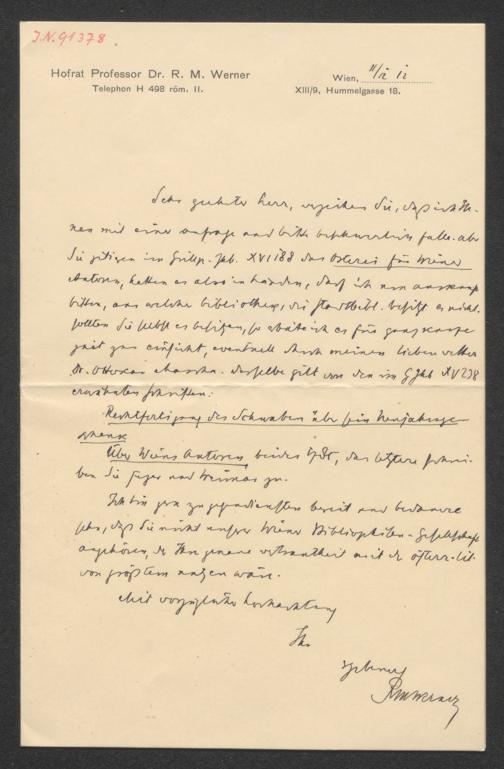 J.N. 91378.
Hofrat Professor Dr. R. M. Werner
Telephon H 498 röm. II.
Wien, 11/12 12
XIII/9, Hummelgasse 18.
Sehr geehrter Herr, verzeihen Sie, daß ich Ih-
nen mit einer Anfrage und Bitte beschwerlich falle. Aber
Sie zitiren im Grillp. Jb. XVI 188 das Osterei für Wiener
Autoren, hatten es also in Händen, darf ich um Auskunft
bitten, aus welcher Bibliothek, die Stadtbibl. besitzt es nicht.
Sollten Sie selbst es besitzen, so erbäte ich es für ganz kurze
Zeit zur Einsicht, eventuell durch meinen lieben Vetter
Dr. Ottokar. Dasselbe gilt von den im G Jhb XV 238
erwähnten Schriften:
Rechtfertigung des Schwaben über sein Neujahrsge-
schenk
Über Wiens Autoren beides, das letztere schrei-
ben Sie und zu.
Ich bin gern zu Gegendiensten bereit und bedaure
sehr, daß Sie nicht unsrer Wiener Bibliophilen-Gesellschaft
angehören, der Ihre genaue Vertrautheit mit der österr. Lit.
von größtem Nutzen wäre.
Mit vorzüglicher Hochachtung
Ihr
ergebener
RMWerner